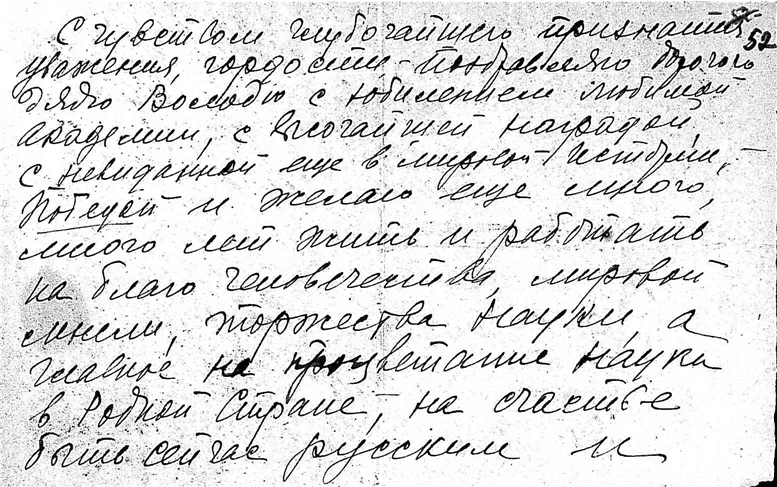 С чувством глубочайшего признания,
52
уважения, гордости - поздравляю дорогого
дядю Володю с юбилением любимой
Академии, с высочайшей наградой,
с невиданной еще в мировой истории, -
Победой и желаю еще много,
много лет жить и работать
на благо человечества, мировой
мысли, торжества науки, а
главное на процветание науки
в Родной Стране, - на счастье
быть сейчас русским и